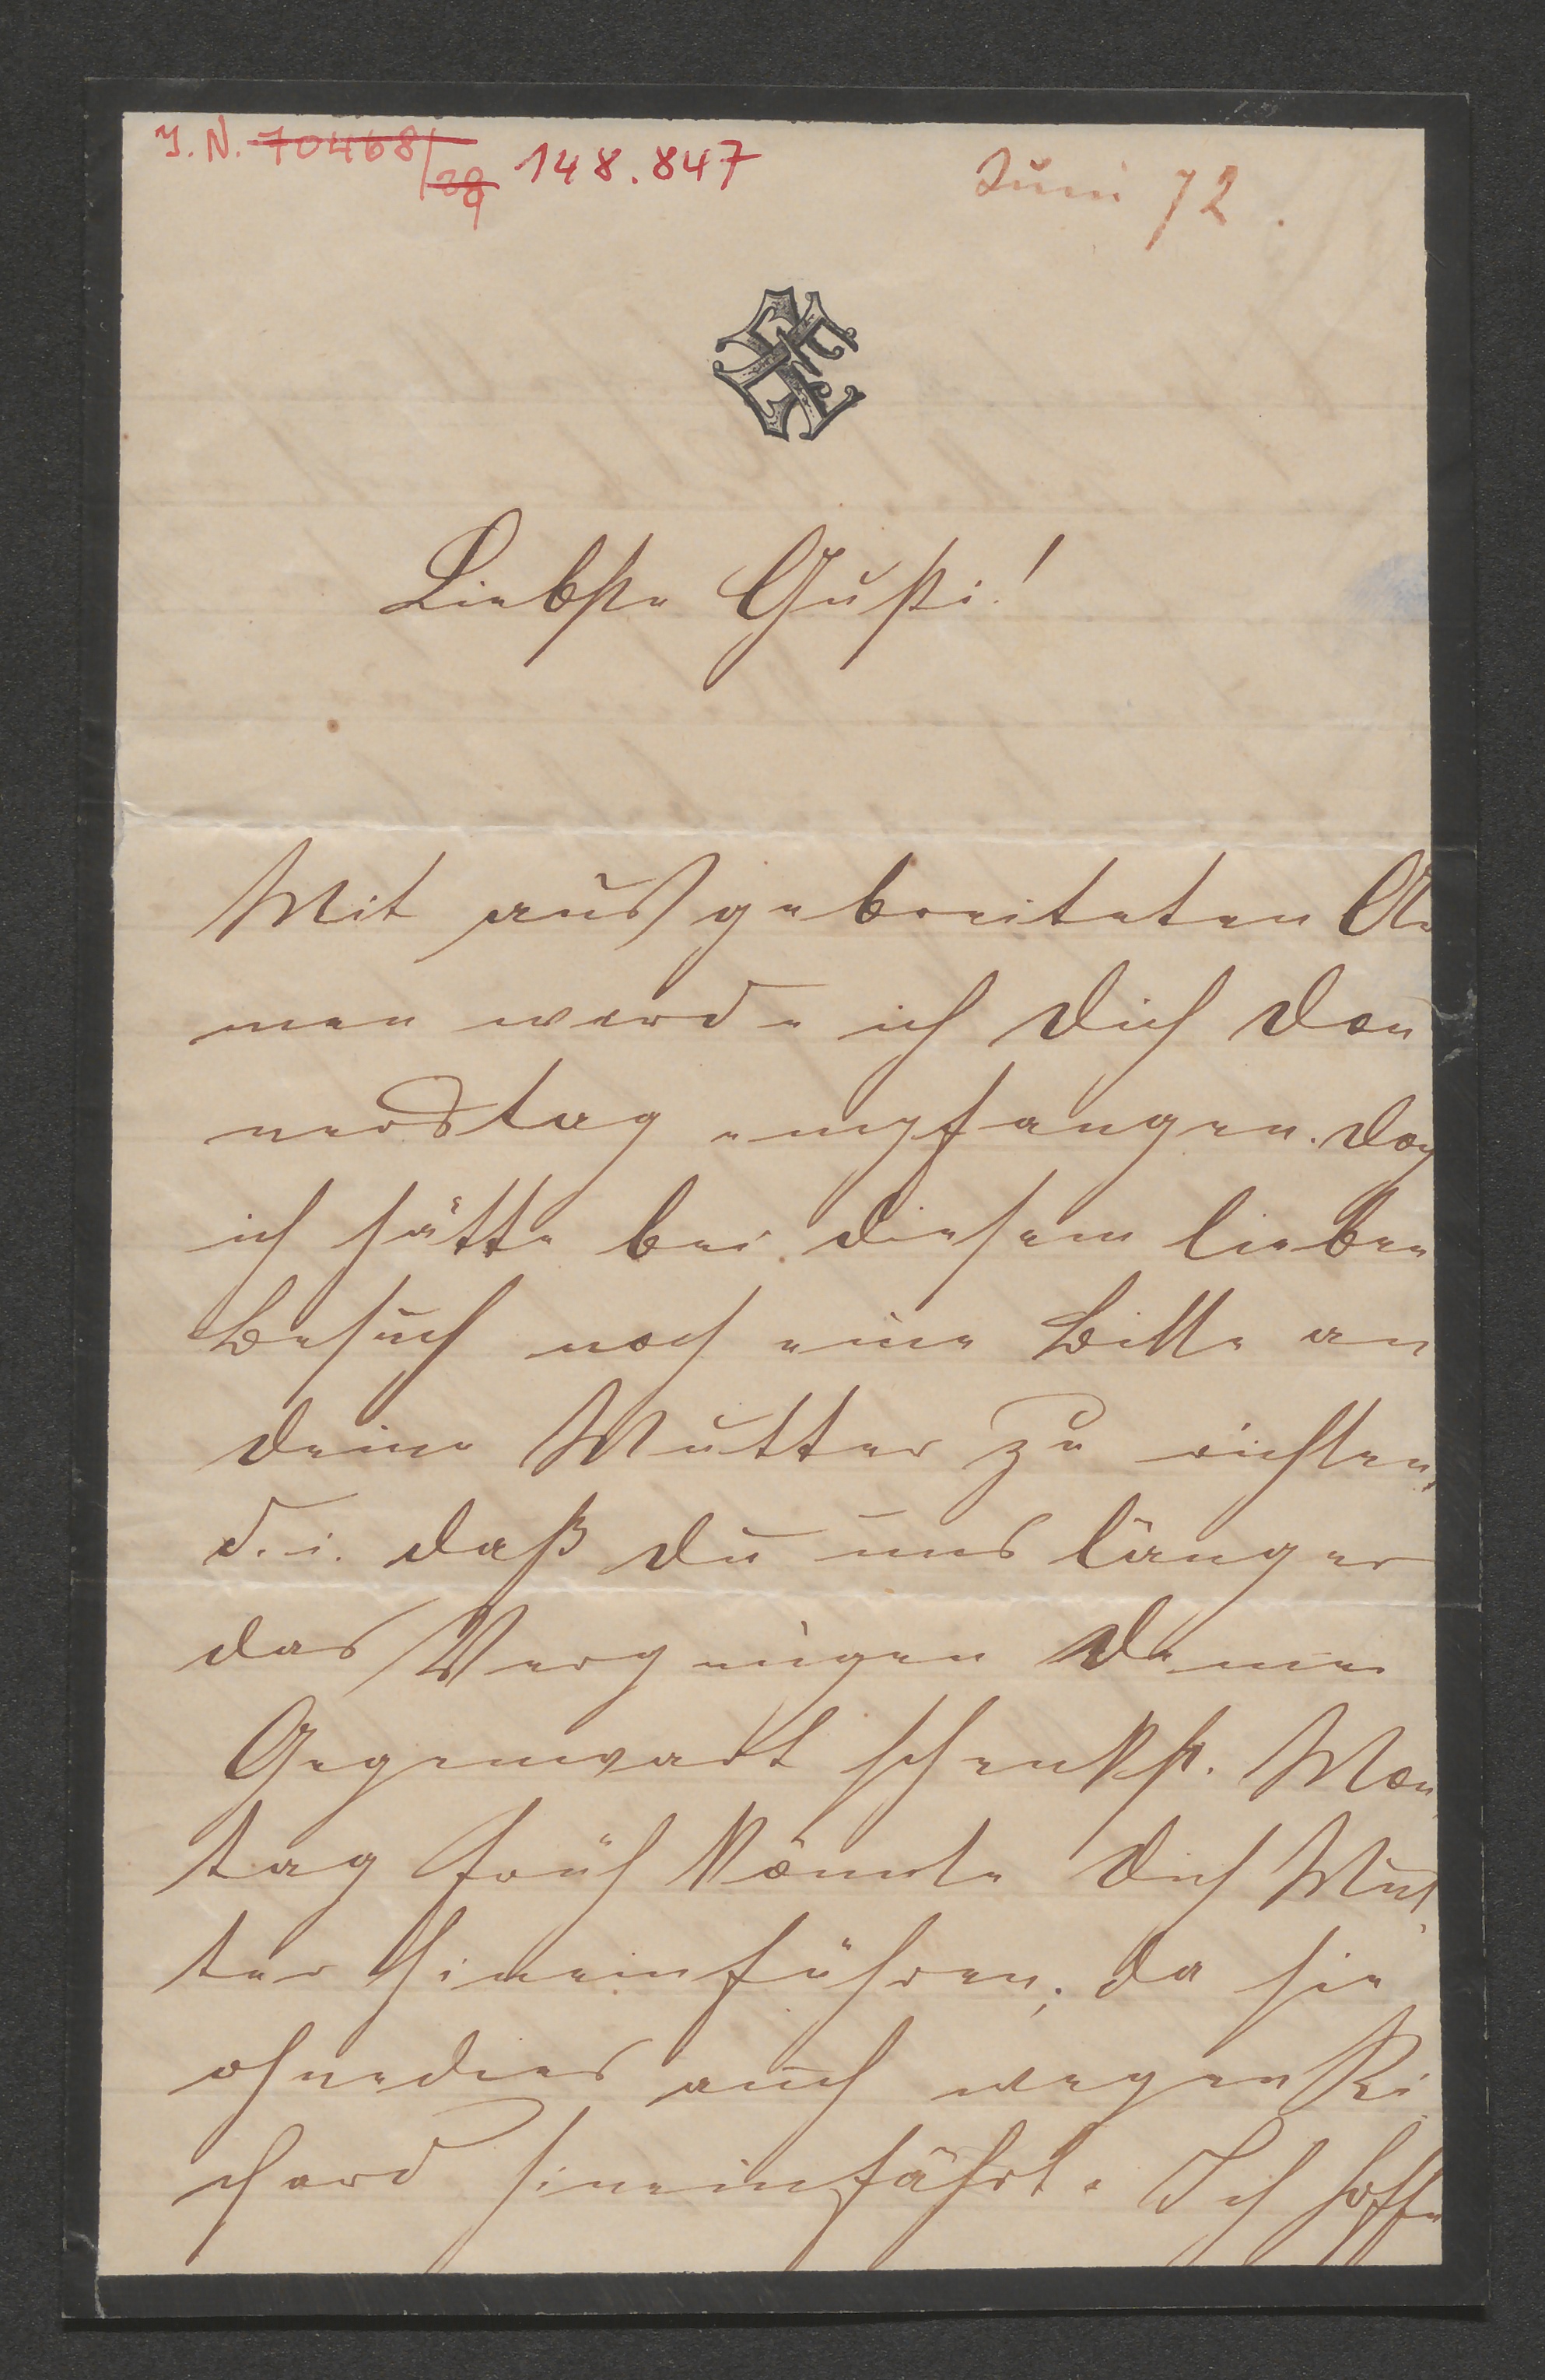 J. N. 70468/39 148.847
Juni 72.
EF
Liebste Gusti!
Mit ausgebreiteten Ar
men werde ich Dich Don
nerstag empfangen. Doch
ich hätte bei diesem lieben
Besuch noch eine Bitte an
Deine Mutter zu richten,
d. i. daß Du uns länger
das Vergnügen Deiner
Gegenwart schenkst. Mon
tag früh könnte Dich Mut
ter hineinführen, da sie
ohnedies auch wegen Ri
chard hineinfährt. Ich hoffe